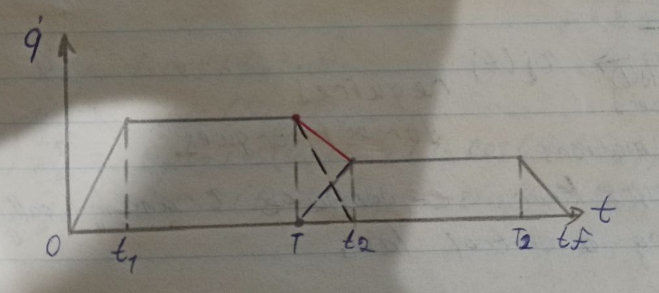 q̇
t
0 t₁ T t₂ T₂ tf